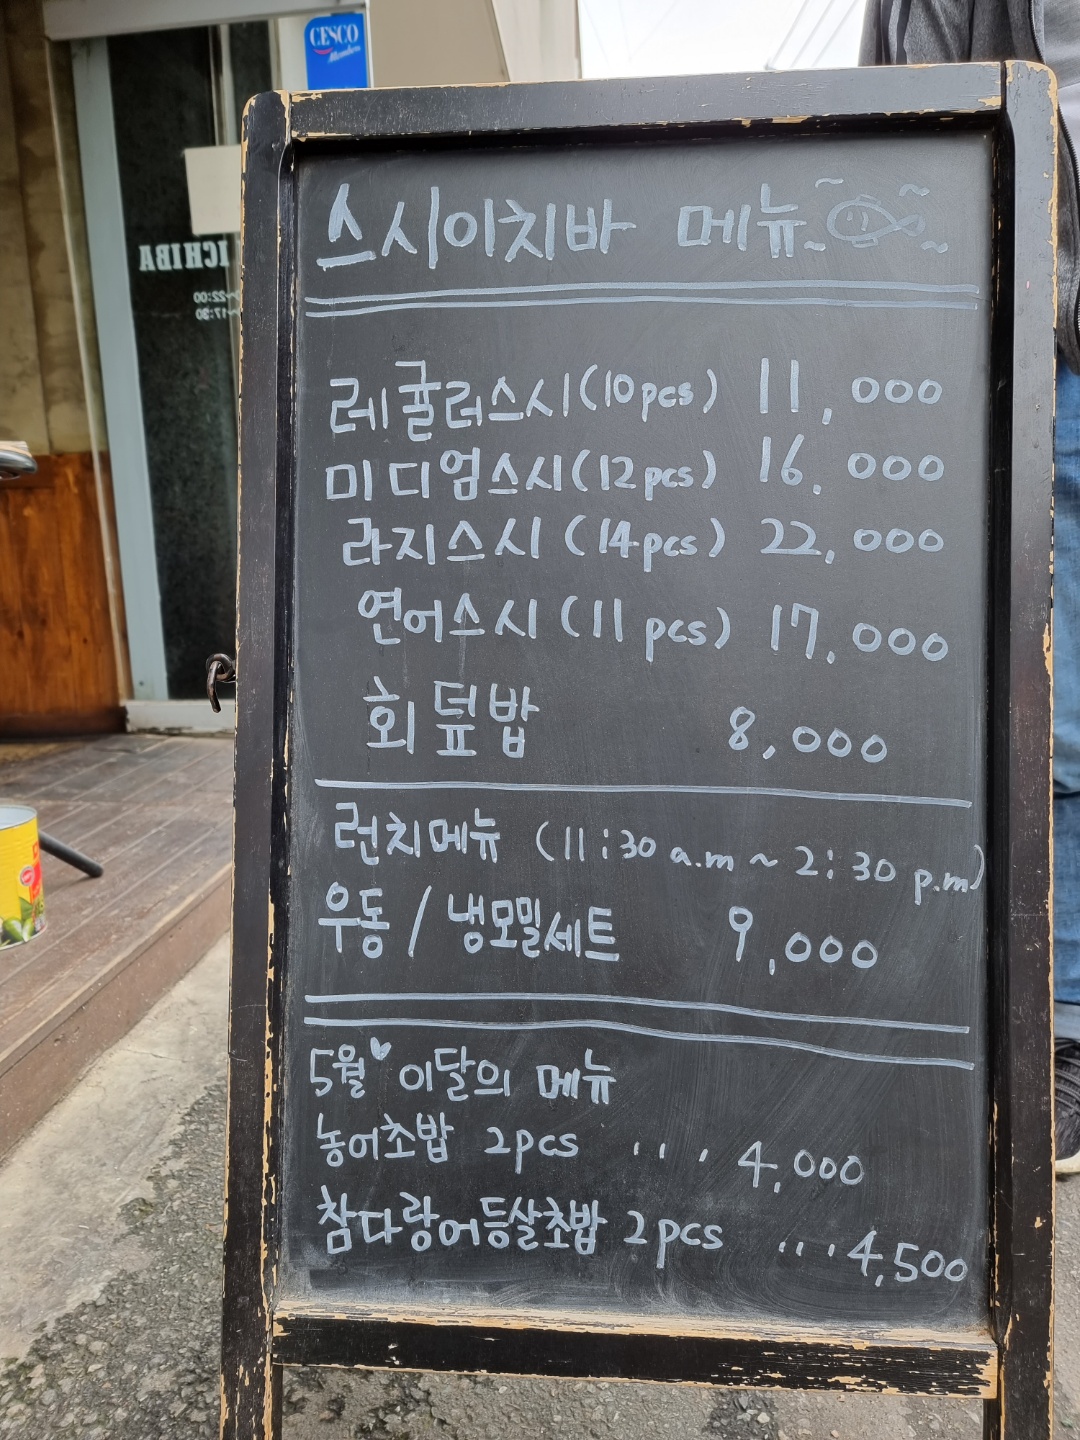 CESCO
Members
ICHIBA
~22:00
~17:30
스시이치바 메뉴
레귤러스시(10pcs) 11,000
미디엄스시(12pcs) 16,000
라지스시 (14pcs) 22,000
연어스시 (11pcs) 17,000
회덮밥 8,000
런치메뉴 (11:30 a.m ~ 2:30 p.m)
우동 / 냉모밀세트 9,000
5월 이달의 메뉴
농어초밥 2pcs .... 4,000
참다랑어등살초밥 2pcs .... 4,500